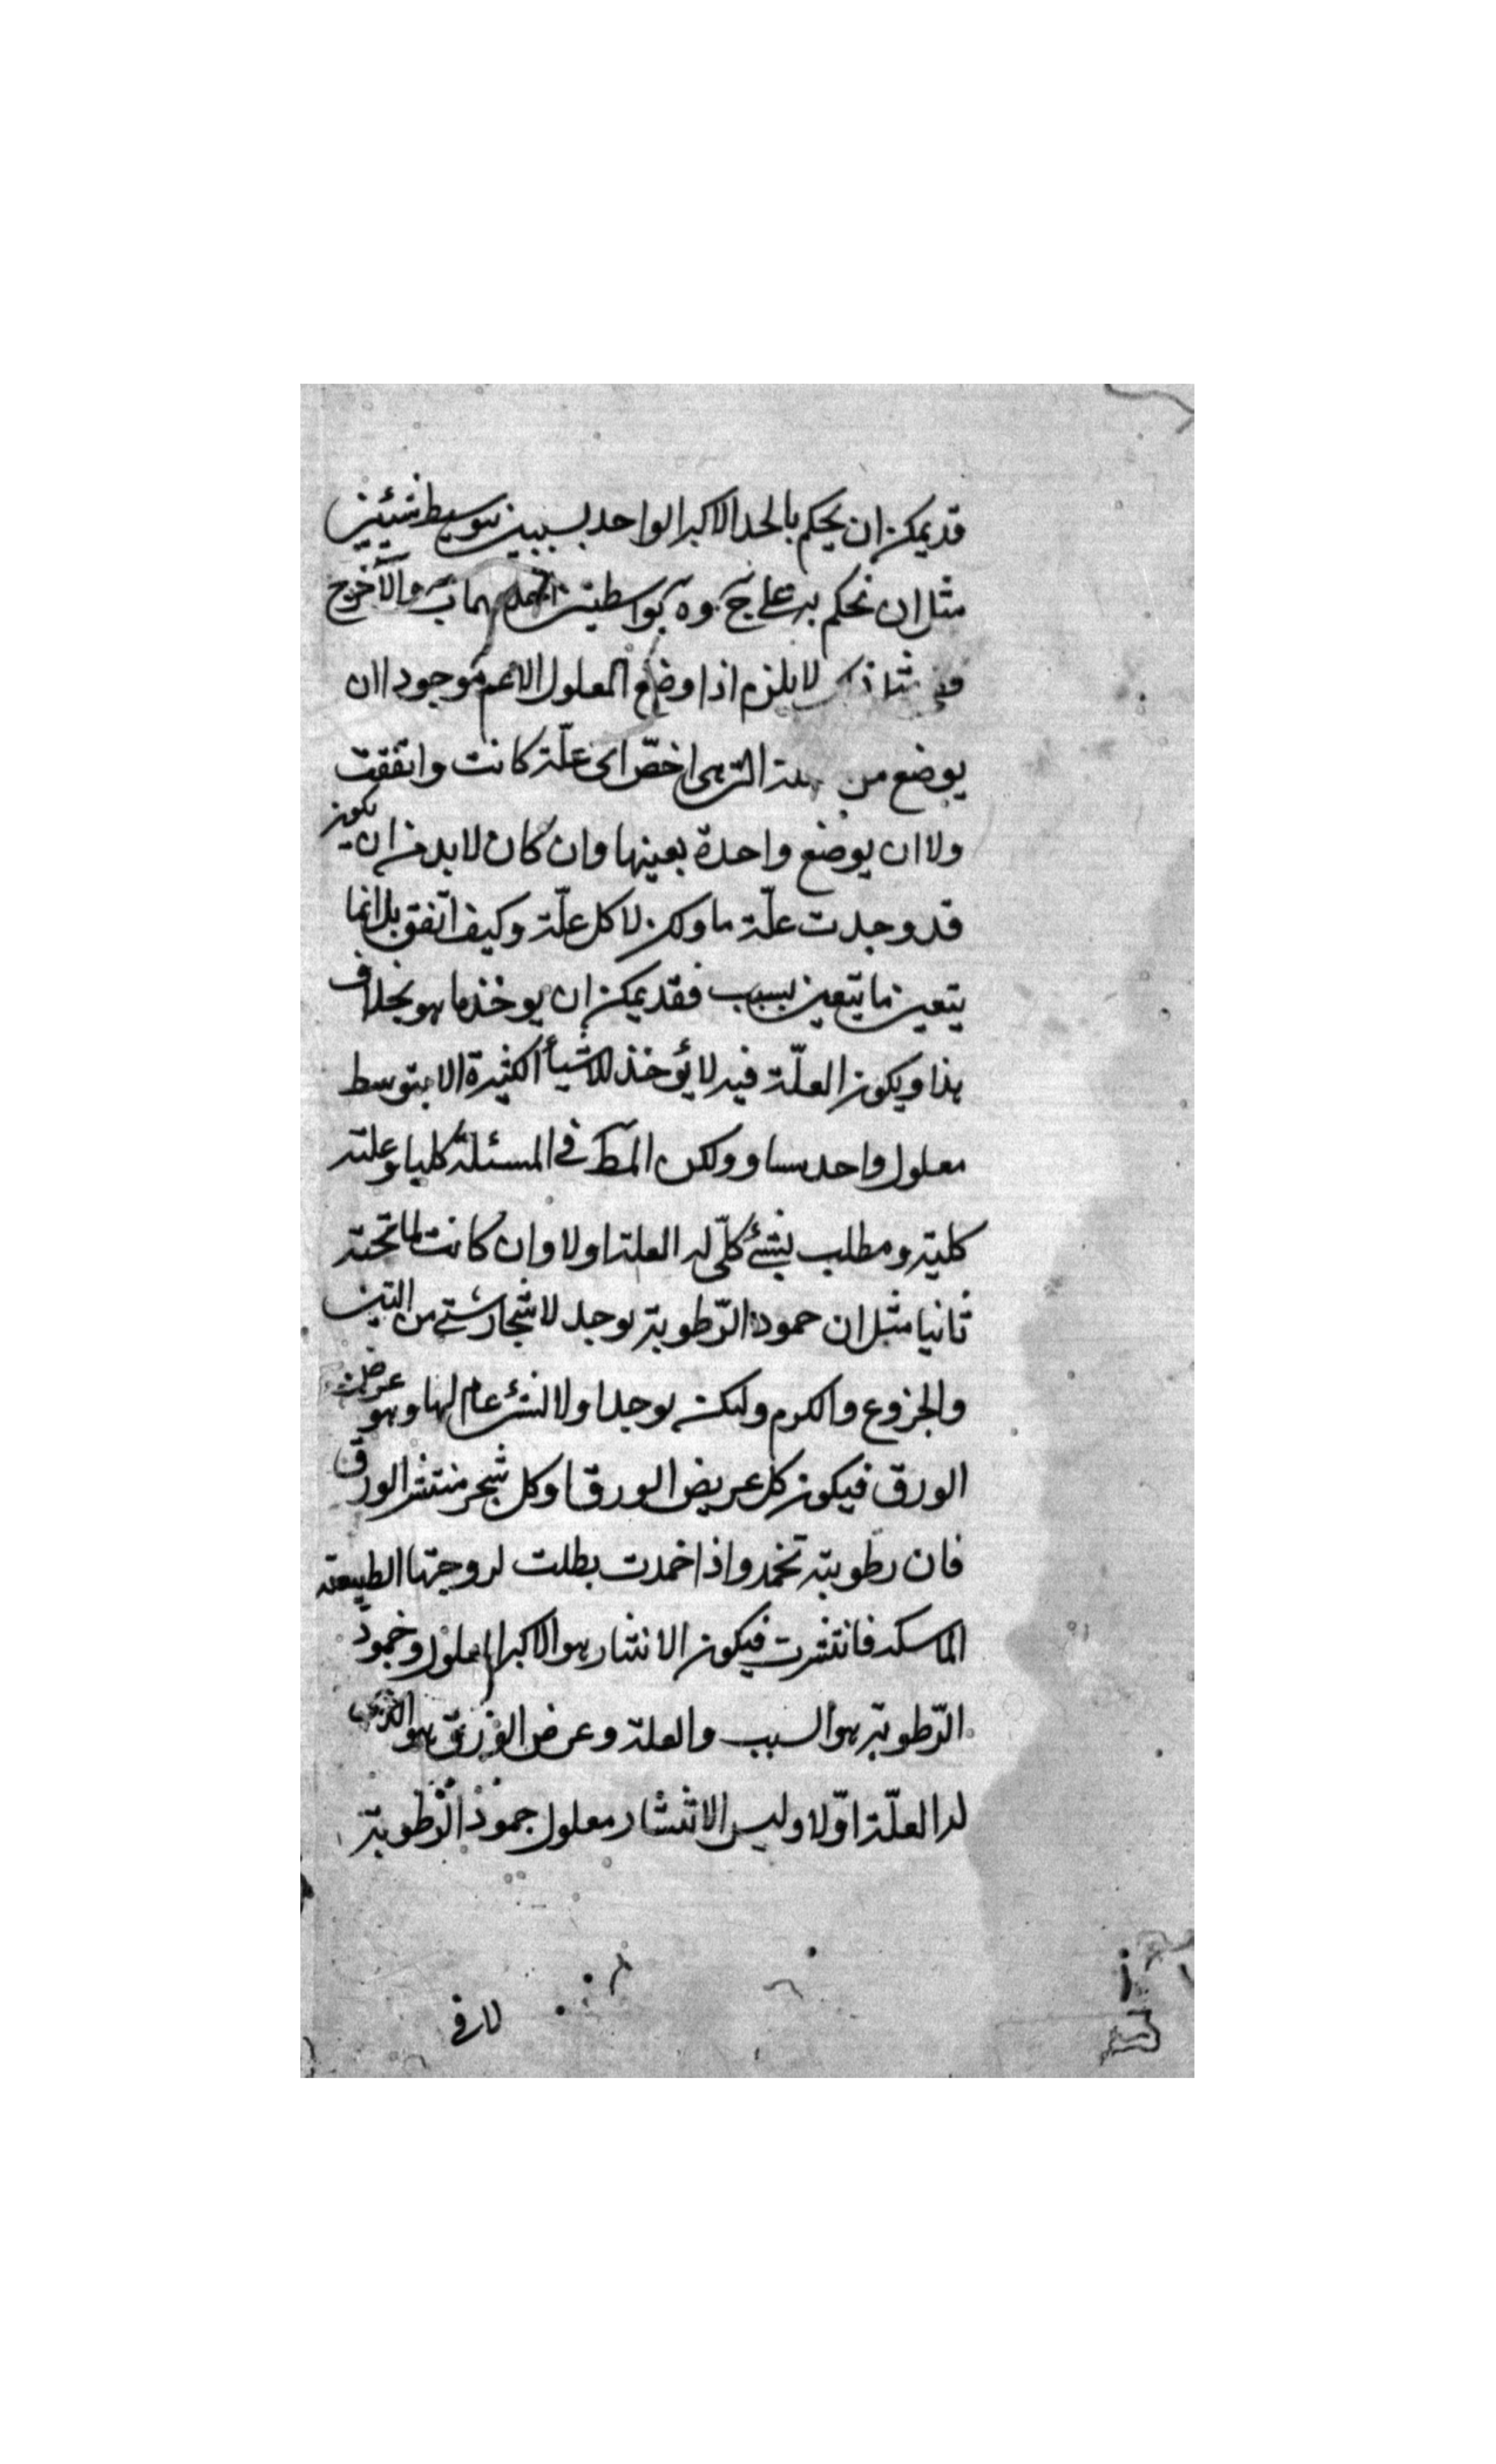 قد يمكن ان يحكم بالحد الاكبر الواحد بسببين بتوسيط شيئين
مثل ان نحكم به على ج و ه بواسطتين احدهما ب والآخر ج
مثل لا يلزم اذا وضع المعلول الاعم موجودا ان
يوضع من التى هى اخصّ اى علّة كانت واتفقت
ولا ان يوضع واحدة بعينها وان كان لا بد من ان يكون
قد وجدت علّة ما ولكن لا كل علّة وكيف اتّفق بل انما
يتعين ما يتعين بسبب فقد يمكن ان يوخذ ما هو بخلاف
هذا ويكون العلّة فيه لا يؤخذ للاشيأ الكثيرة الا بتوسط
معلول واحد مساو ولكن المط فى المسئلة كليا وعلته
كلية ومطلب بشئ كلّى له العلة اولا وان كانت لما تحته
ثانيا مثل ان جمود الرّطوبة يوجد لاشجار شتى من التين
والخروع والكرم ولكن يوجد اولا لشئ عام لها وهو عرض
الورق فيكون كل عريض الورق وكل شجر منتثر الورق
فان رطوبته تخمد واذا خمدت بطلت لزوجتها الطبيعة
الماسكه فانتثرت فيكون الانتثار هو الاكبر المعلول وخمود
الرّطوبة هو السبب والعلة وعرض الورق هو الذى
له العلّة اوّلا وليس الانتشار معلول جمود الرّطوبة
لا فى